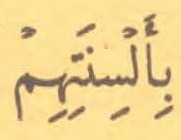 بِأَلْسِنَتِهِمْ